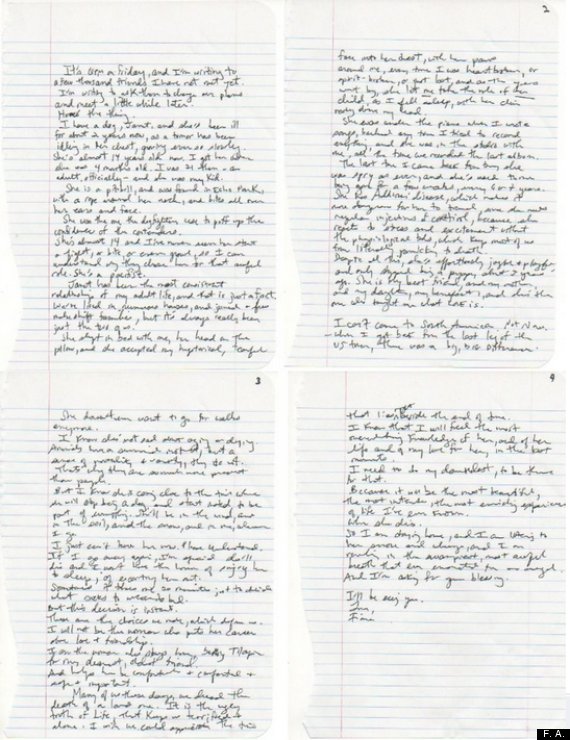 It's 6pm on Friday, and I'm writing to
a few thousand friends I have not met yet.
I'm writing to ask them to change our plans
and meet a little while later.
Here's the thing.
I have a dog, Janet, and she's been ill
for about 2 years now, as a tumor has been
idling in her chest, growing ever so slowly.
She's almost 14 years old now. I got her when
she was 4 months old. I was 21 then - an
adult, officially - and she was my kid.
She is a pitbull, and was found in Echo Park,
with a rope around her neck, and bites all over
her ears and face.
She was the one the dogfighters use to puff up the
confidence of the contenders.
She's almost 14 and I've never seen her start
a fight, or bite, or even growl, so I can
understand why they chose her for that awful
role. She's a pacifist.
Janet has been the most consistent
relationship of my adult life, and that is just a fact.
We've lived in numerous houses, and joined a few
makeshift families, but it's always really been
just the two of us.
She slept in bed with me, her head on the
pillow, and she accepted my hysterical, tearful
2
face into her chest, with her paws
around me, every time I was heartbroken, or
spirit-broken, or just lost, and as the years
went by, she let me take the role of her
child, as I fell asleep, with her chin
resting above my head.
She was under the piano when I wrote
songs, barked any time I tried to record
anything, and she was in the studio with
me, all the time we recorded the last album.
The last time I came back from tour, she
was spry as ever, and she's used to me
being gone for a few weeks, every 6 or 7 years.
She has Addison's Disease, which makes it
more dangerous for her to travel, since she needs
regular injections of Cortisol, because she
reacts to stress and excitement without
the physiological tools which keep most of us
from literally panicking to death.
Despite all this, she's effortlessly joyful & playful
and only stopped being a puppy about 3 years
ago. She is my best friend, and my mother,
and my daughter, my benefactor, and she's the
one who taught me what love is.
I can't come to South America. Not now.
When I got back from the last leg of the
US tour, there was a big, big difference.
3
She doesn't even want to go for walks
anymore.
I know she's not sad about aging or dying.
Animals have a survival instinct, but a
sense of mortality & vanity, they do not.
That's why they are so much more present
than people.
But I know she is coming close to the time where
she will stop being a dog, and start instead to be
part of everything. She'll be in the wind, and
in the soil, and the snow, and in me, wherever
I go.
I just can't leave her now. Please understand.
If I go away again, I'm afraid she'll
die and I won't have the honor of singing her
to sleep, of escorting her out.
Sometimes it takes me 20 minutes just to decide
what socks to wear to bed.
But this decision is instant.
These are the choices we make, which define us.
I will not be the woman who puts her career
above love & friendship.
I am the woman who stays home, baking Tilapia
for my dearest, oldest friend.
And helps her be comfortable & comforted &
safe & important.
Many of us these days, we dread the
death of a loved one. It is the ugly
truth of Life, that keeps us terrified &
alone. I wish we could appreciate the time
4
that lies right beside the end of time.
I know that I will feel the most
overwhelming knowledge of her, and of her
life and of my love for her, in the last
moments.
I need to do my damnedest, to be there
for that.
Because it will be the most beautiful,
the most intense, the most enriching experience
of life I've ever known.
When she dies.
So I am staying home, and I am listening to
her snore and wheeze, and I am
revelling in the swampiest, most awful
breath that ever emanated from an angel.
And I'm asking for your blessing.
I'll be seeing you.
Love,
Fiona
F. A.